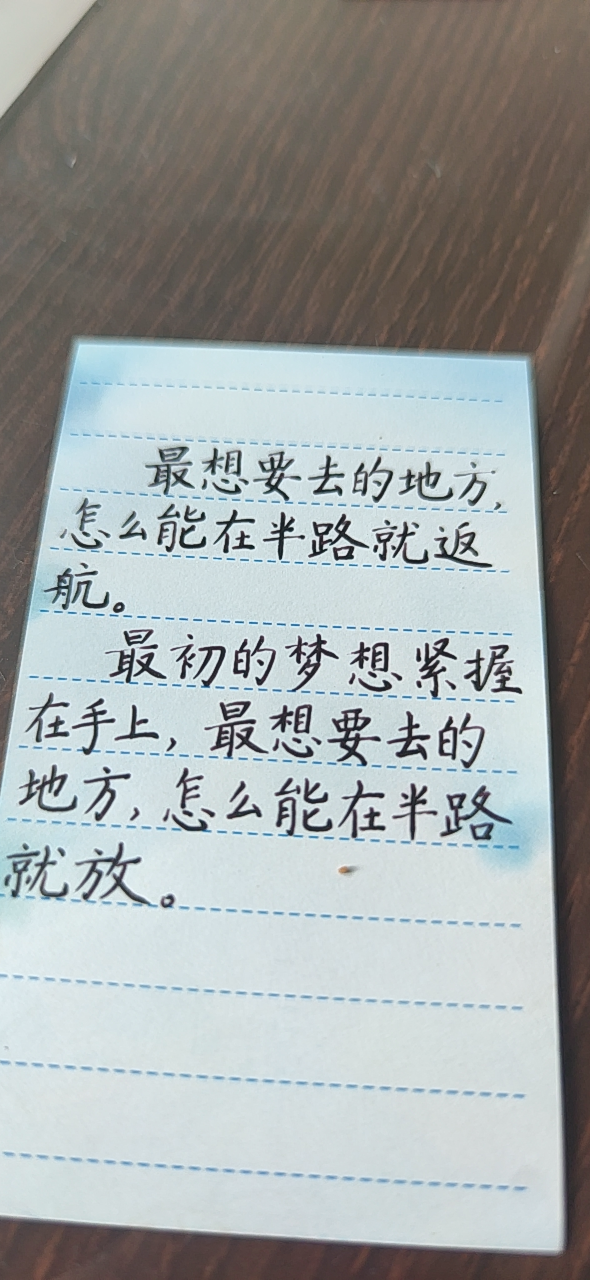 最想要去的地方,
怎么能在半路就返
航。
最初的梦想紧握
在手上,最想要去的
地方,怎么能在半路
就放。